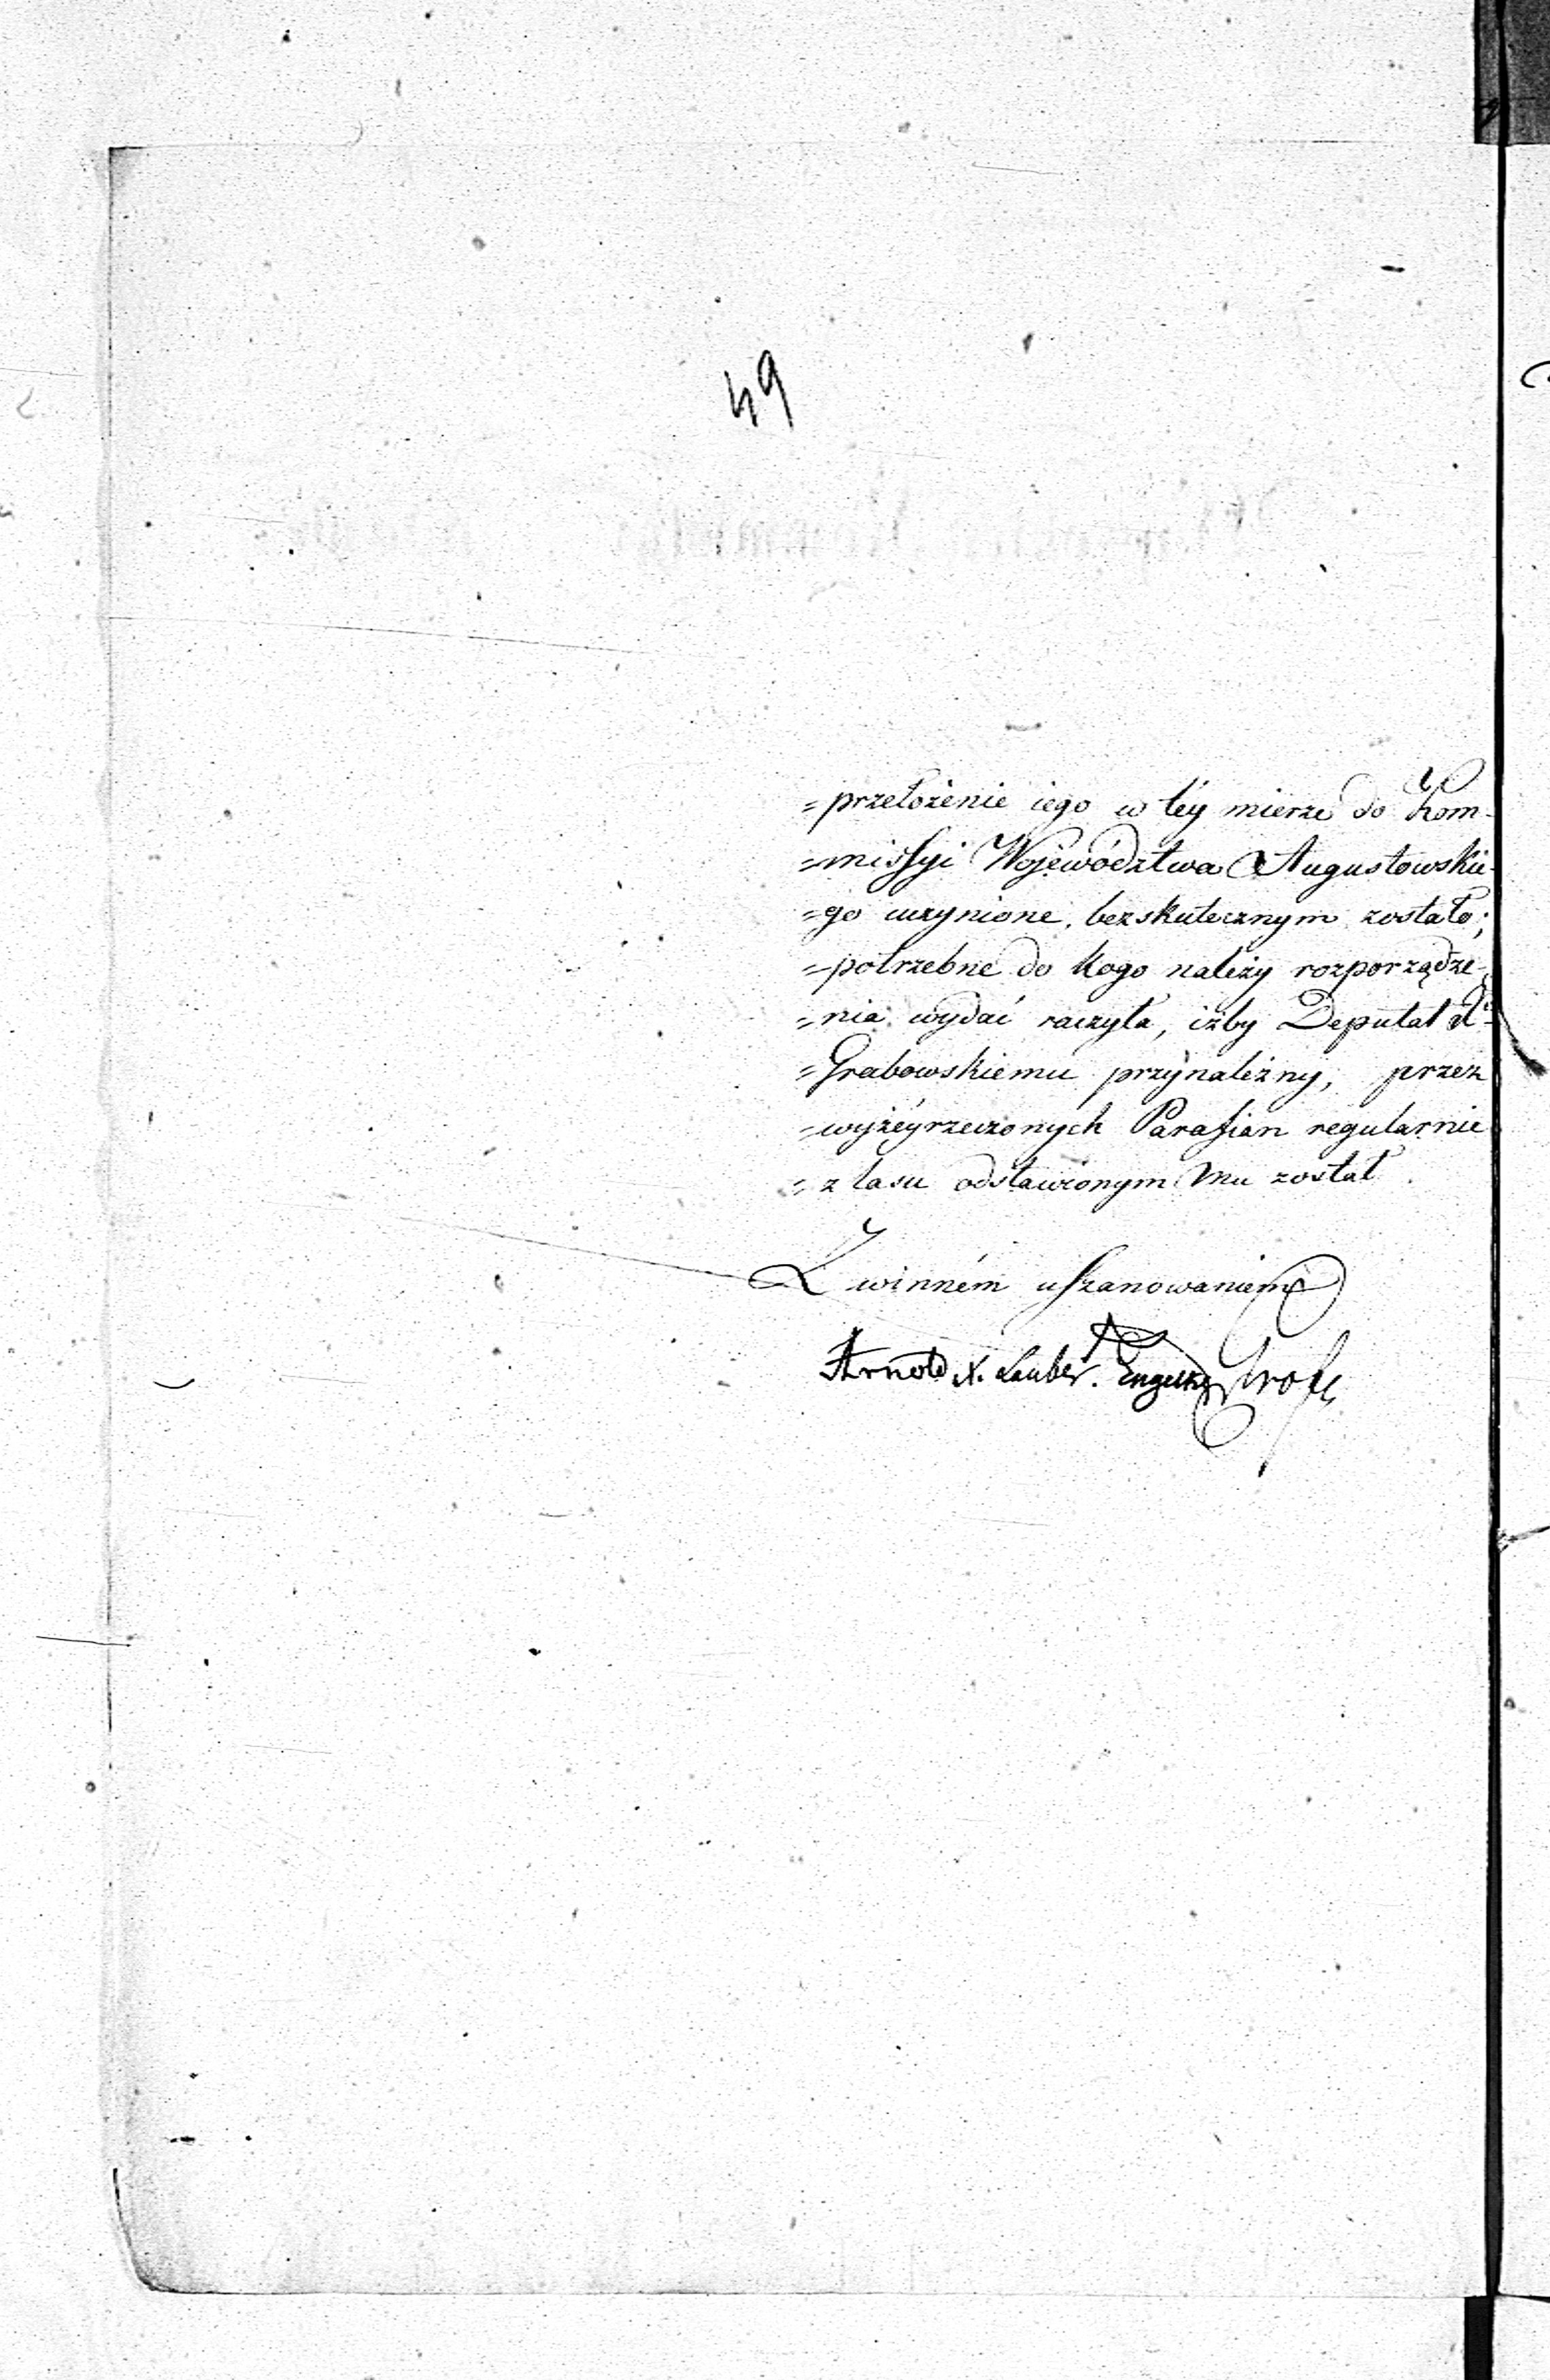 49
=przełożenie iego w téy mierze do Kom-
=missyi Województwa Augustowskie-
=go uczynione, bezskutecznym zostało;
=potrzebne do kogo należy rozporządze-
=nia wydać raczyła, iżby Deputat X.
=Grabowskiemu przynależny, przez
=wyżéyrzeczonych Parafian regularnie
=z lasu odstawionym Mu został.
Z winném uszanowaniem
Arnold X. Lauber.